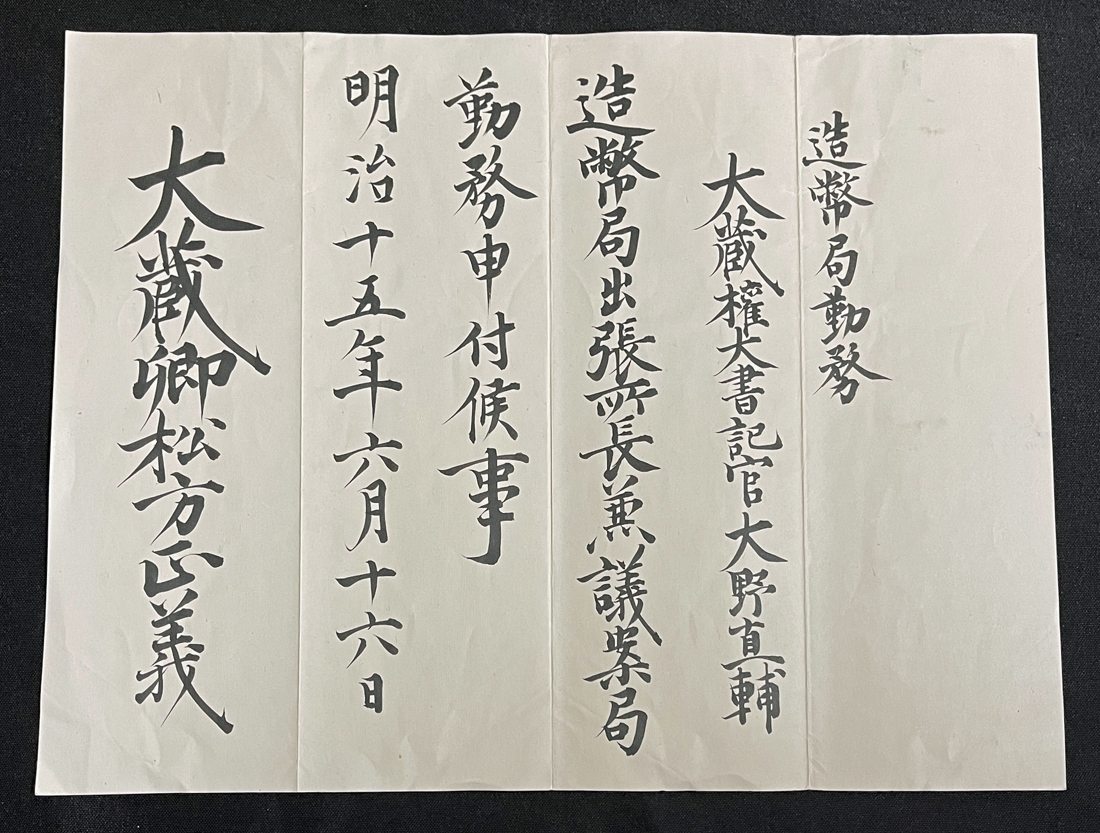 造幣局勤務
大蔵権大書記官大野直輔
造幣局出張所長兼議案局
勤務申付候事
明治十五年六月十六日
大蔵卿松方正義